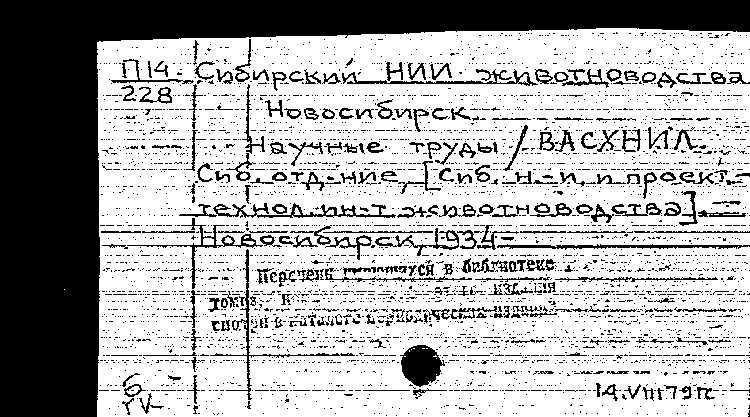 П14 Сибирский НИИ животноводства
228
Новосибирск.
Научные труды / ВАСХНИЛ.
Сиб. отд-ние, [Сиб. н.-и. и проект.-
технол. ин-т животноводства].—
Новосибирск, 1934-
Перечень имеющихся в библиотеке
томов, и издания
смотри в каталоге периодических изданий
14.VIII79г